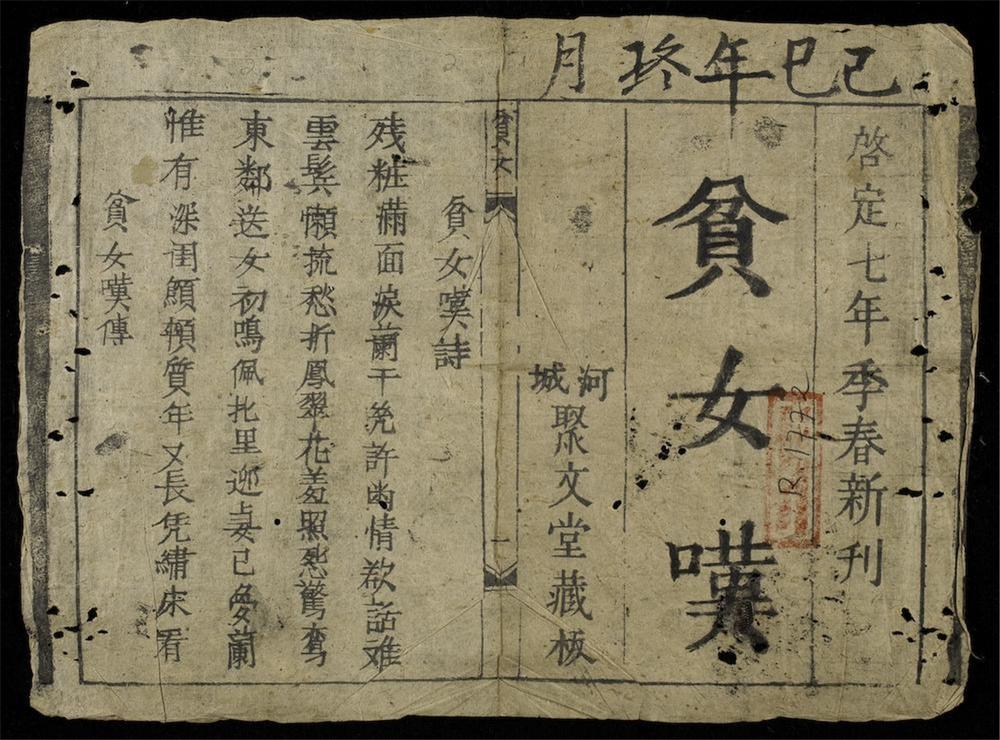 己巳年終月
啓定七年季春新刊
貧女嘆
河城
聚文堂藏板
R.1772
貧女
一
貧女嘆詩
残粧滿面淚蘭干 㡬許幽情欲話难
雲鬂懶梳愁折鳳翠花羞照㤪驚鸾
東鄰送女初鳴佩 里迎妻已夢蘭
惟有深闺顦頓質年又長凭繡床看
貧女嘆傳